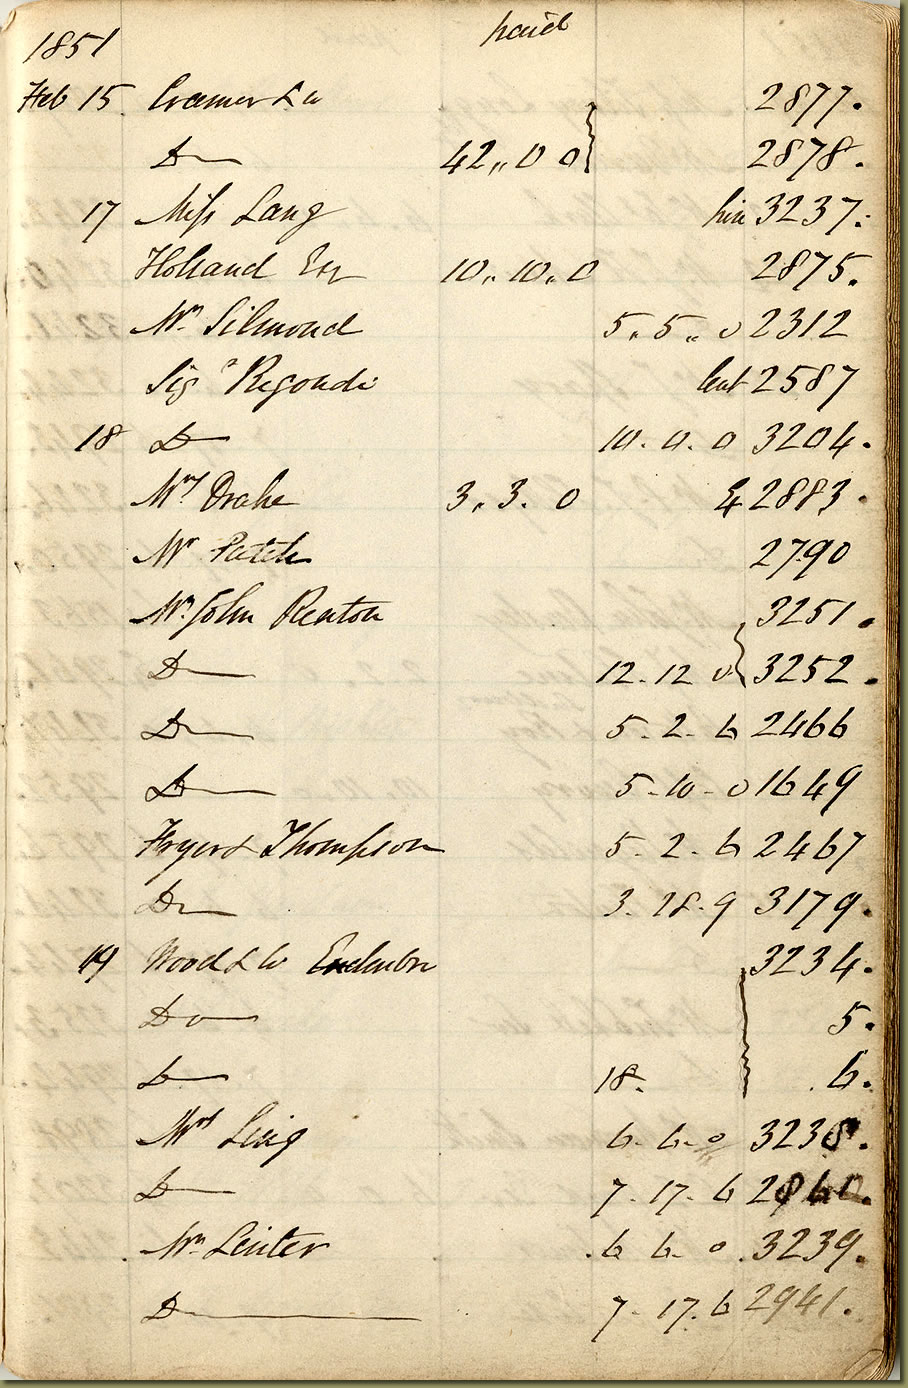 1851 paid
Feb 15 Cramer & Co 2877.
Do 42,, 0 0 2878.
17 Miss Lang hire 3237.
Holland Esq 10,, 10,, 0 2875.
Mr Silmond 5,, 5,, 0 2312
Sigr Regondi lent 2587
18 Do 10. 0. 0 3204.
Mrs Drake 3,, 3. 0 2883.
Mr Patch 2790
Mr. John Renton 3251.
Do 12. 12 0 3252.
Do 5. 2. 6 2466
Do 5. 10. 0 1649
Fryer & Thompson 5. 2. 6 2467
Do 3. 18. 9 3179.
19 Wood & Co 3234.
Do 5.
Do 18. 6.
Mrs Ling 6. 6. 0 3238.
Do 7. 17. 6
Mr. Leuter 6 6. 0 3239.
Do 7. 17. 6 2941.